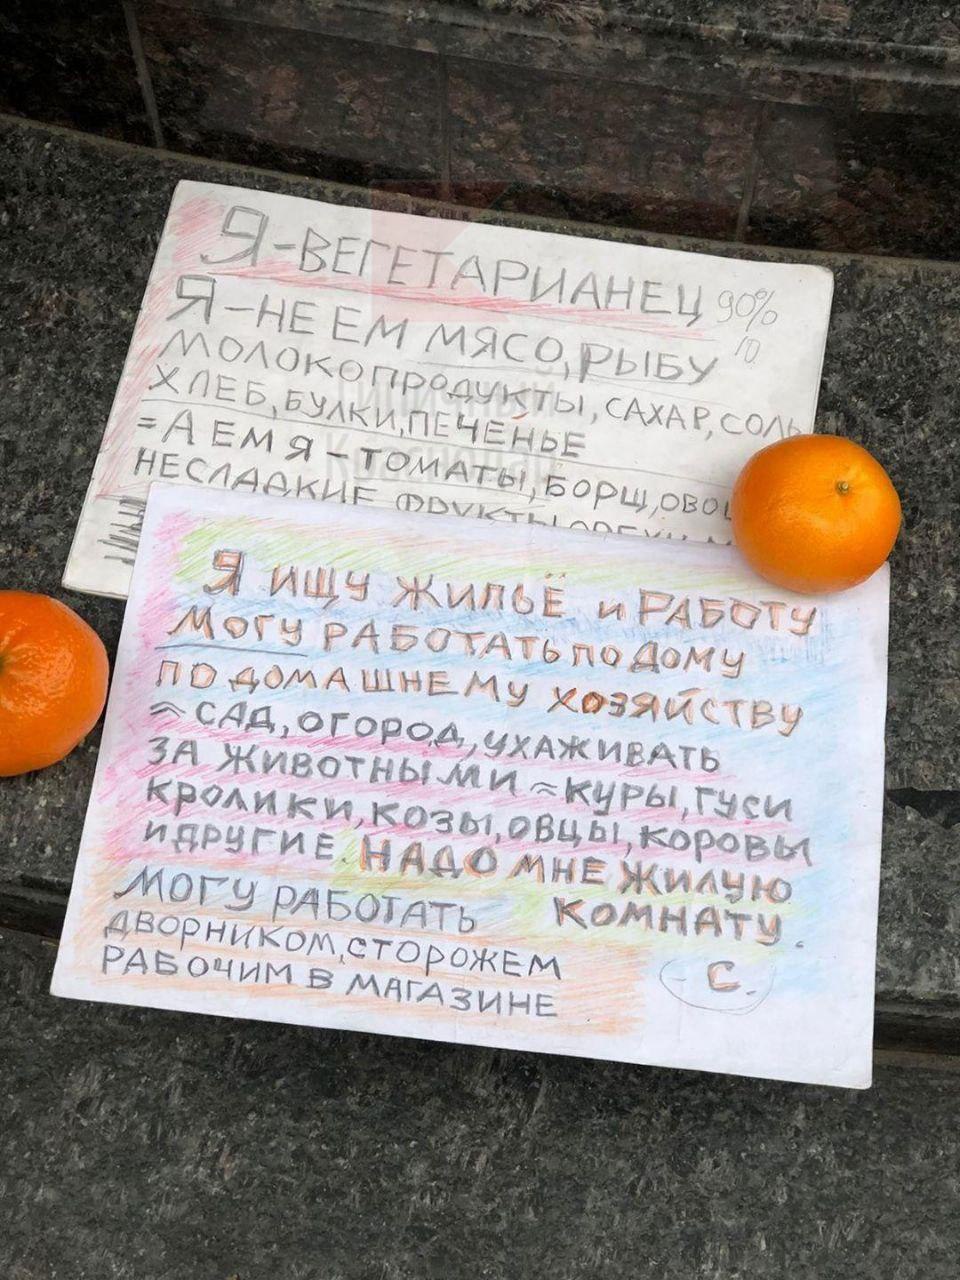 Я-ВЕГЕТАРИАНЕЦ 90%
Я-НЕ ЕМ МЯСО, РЫБУ 10
МОЛОКОПРОДУКТЫ, САХАР, СОЛЬ
ХЛЕБ, БУЛКИ, ПЕЧЕНЬЕ
= А ЕМ Я - ТОМАТЫ, БОРЩ, ОВОЩ
НЕСЛАДКИЕ ФРУКТЫ
Типичный
Краснодар
Я ИЩУ ЖИЛЬЁ и РАБОТУ
МОГУ РАБОТАТЬ ПО ДОМУ
ПО ДОМАШНЕМУ ХОЗЯЙСТВУ
≈ САД, ОГОРОД, УХАЖИВАТЬ
ЗА ЖИВОТНЫМИ ≈ КУРЫ, ГУСИ
КРОЛИКИ, КОЗЫ, ОВЦЫ, КОРОВЫ
И ДРУГИЕ. НАДО МНЕ ЖИЛУЮ
КОМНАТУ.
МОГУ РАБОТАТЬ
ДВОРНИКОМ, СТОРОЖЕМ
РАБОЧИМ В МАГАЗИНЕ
С.